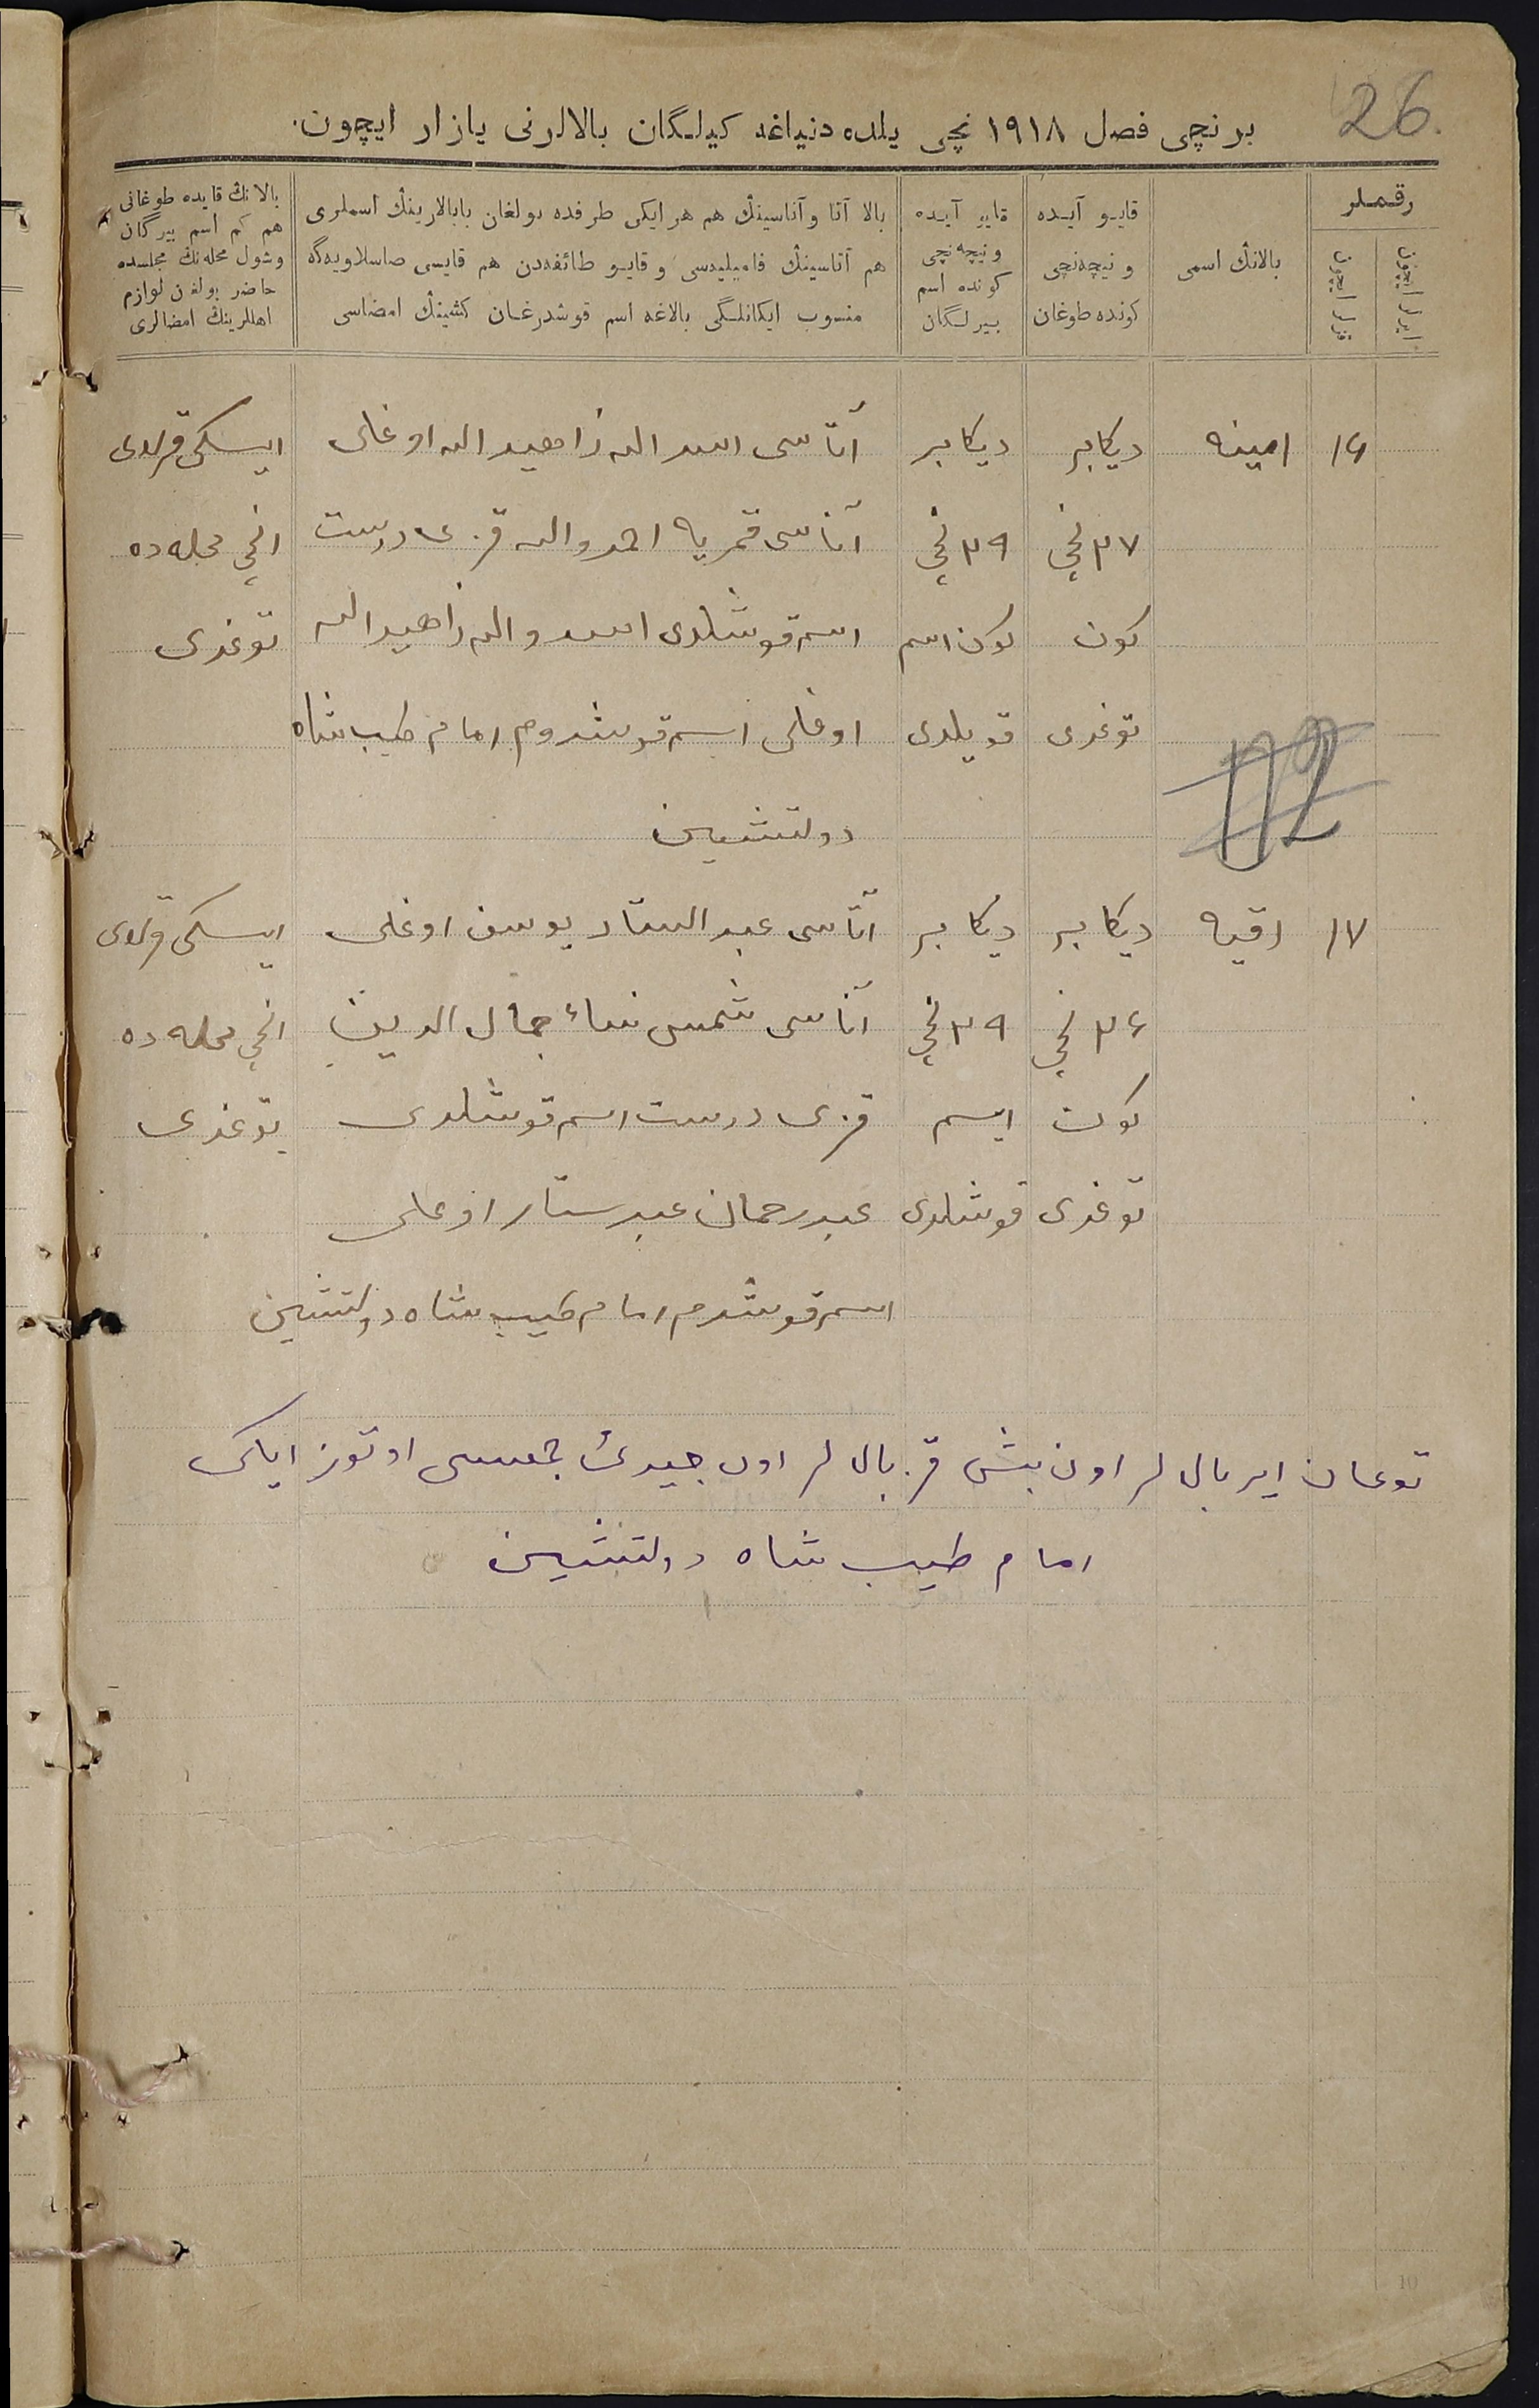 26.
برنچی فصل ١٩١٨ نچی یلده دنیاغه کیلگان بالالرنی یازار ایچون.
رقملر
ایرلر ایچون
قزلر ایچون
بالانڭ اسمی
قایو آیده
و نیچه‌نچی
کونده طوغان
قایو آیده
و نیچه‌نچی
کونده اسم
بیرلگان
بالا آتا و آناسینڭ هم هر ایکی طرفده بولغان بابالارینڭ اسملری
هم آتاسینڭ فامیلیه‌سی و قایو طائفه‌دن هم قایسی صاسلاویه‌گه
منسوب ایکانلگی بالاغه اسم قوشدرغان کشینڭ امضاسی
بالانڭ قایده طوغانی
هم کم اسم بیرگان
و شول محله‌نڭ مجلسده
حاضر بولغن لوازم
اهللرینڭ امضالری
١٦ امینه دیکابر دیکابر آتاسی اسد الله زاهید الله اوغلی ایسکی
٢٧ نچی ٢٩ نچی آناسی قمریه احمد والله قزی درست انچی محله ده
کون کون اسم اسم قوشلدی اسد والله زاهید الله توغدی
توغدی قویلدی اوغلی اسم قوشدوم امام طیب شاه
دولتشین
١٧ رقیه دیکابر دیکابر آتاسی عبد الستار یوسف اوغلی ایسکی
٢٦ نچی ٢٩ نچی آناسی شمس نساء جمال الدین انچی محله ده
کون ایسم قزی درست اسم قوشلدی توغدی
توغدی قوشلدی عبدرحمان عبدستار اوغلی
اسم قوشدم امام طیب شاه دولتشین
توغان ایر بالالر اون بش قز بالالر اون جیدی جمعسی اوتوز ایکی
امام طیب شاه دولتشین
10